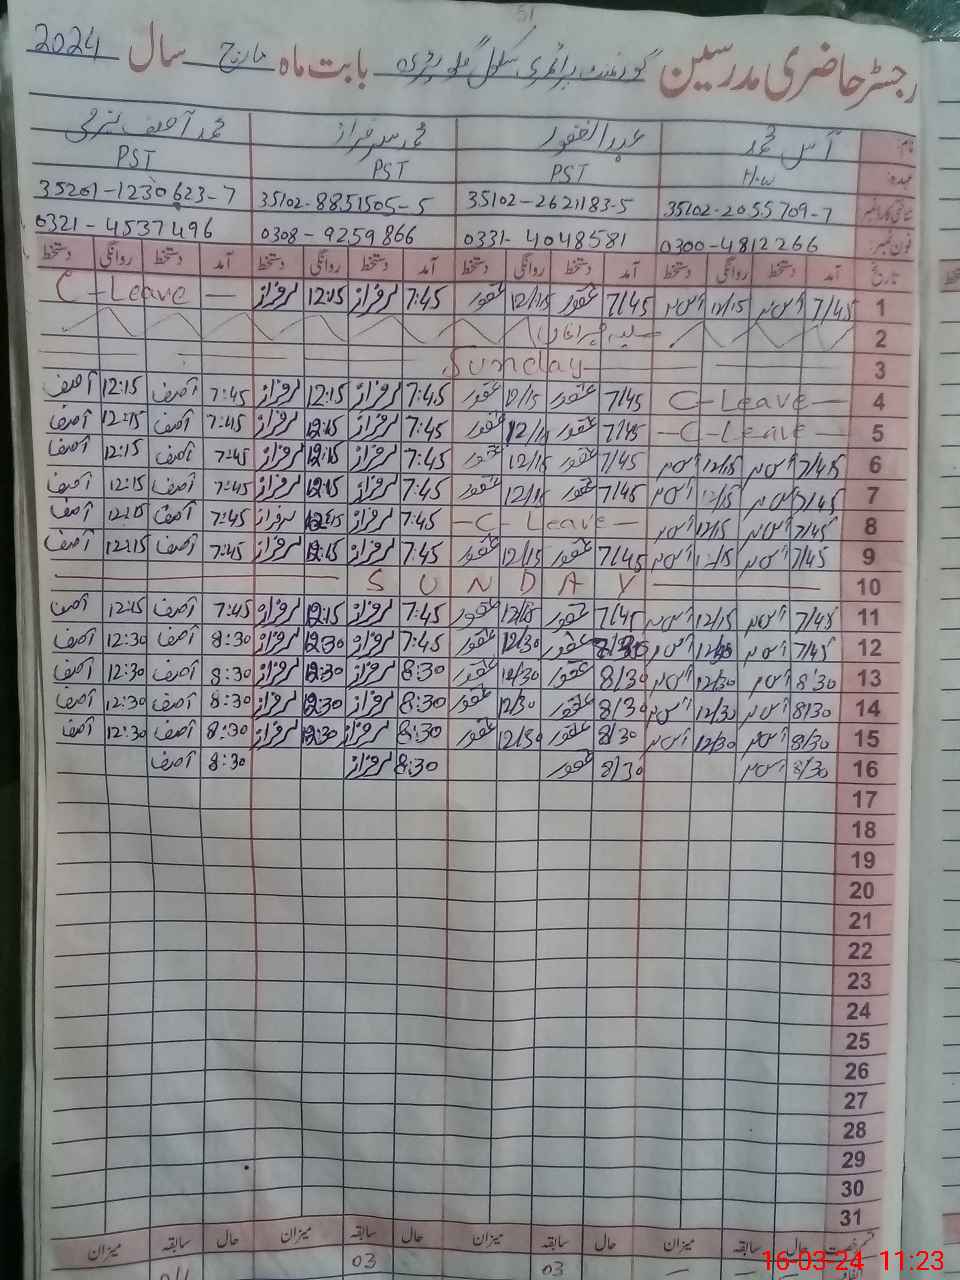 51
رجسٹر حاضری مدرسین گورنمنٹ پرائمری سکول بابت ماہ مارچ سال 2024
نام: آس محمد عبدالغفور محمد سرفراز محمد آصف
عہدہ: H.W PST PST PST
شناختی کارڈ نمبر 35102-2055709-7 35102-2621183-5 35102-8851505-5 35201-1230623-7
فون نمبر: 0300-4812266 0331-4048581 0308-9259866 0321-4537496
تاریخ آمد دستخط روانگی دستخط آمد دستخط روانگی دستخط آمد دستخط روانگی دستخط آمد دستخط روانگی دستخط
1 7/45 آس م 12/15 آس م 7/45 غفور 12/15 غفور 7:45 سرفراز 12:15 سرفراز C-Leave —
2
3 Sunday
4 C-Leave — 7/45 غفور 12/15 غفور 7:45 سرفراز 12:15 سرفراز 7:45 آصف 12:15 آصف
5 — C-Leave — 7/45 غفور 12/15 غفور 7:45 سرفراز 12:15 سرفراز 7:45 آصف 12:15 آصف
6 7/45 آس م 12/15 آس م 7/45 غفور 12/15 غفور 7:45 سرفراز 12:15 سرفراز 7:45 آصف 12:15 آصف
7 7/45 آس م 12/15 آس م 7/45 غفور 12/15 غفور 7:45 سرفراز 12:15 سرفراز 7:45 آصف 12:15 آصف
8 7/45 آس م 12/15 آس م — C-Leave — 7:45 سرفراز 12:15 سرفراز 7:45 آصف 12:15 آصف
9 7/45 آس م 12/15 آس م 7/45 غفور 12/15 غفور 7:45 سرفراز 12:15 سرفراز 7:45 آصف 12:15 آصف
10 SUNDAY
11 7/45 آس م 12/15 آس م 7/45 غفور 12/15 غفور 7:45 سرفراز 12:15 سرفراز 7:45 آصف 12:15 آصف
12 7/45 آس م 12/30 آس م 8/30 غفور 12/30 غفور 7:45 سرفراز 12:30 سرفراز 8:30 آصف 12:30 آصف
13 8/30 آس م 12/30 آس م 8/30 غفور 12/30 غفور 8:30 سرفراز 12:30 سرفراز 8:30 آصف 12:30 آصف
14 8/30 آس م 12/30 آس م 8/30 غفور 12/30 غفور 8:30 سرفراز 12:30 سرفراز 8:30 آصف 12:30 آصف
15 8/30 آس م 12/30 آس م 8/30 غفور 12/30 غفور 8:30 سرفراز 12:30 سرفراز 8:30 آصف 12:30 آصف
16 8/30 آس م 8/30 غفور 8:30 سرفراز 8:30 آصف
17
18
19
20
21
22
23
24
25
26
27
28
29
30
31
قسم رخصت حال سابقہ میزان حال سابقہ میزان حال سابقہ میزان حال سابقہ میزان
03 03
16-03-24 11:23